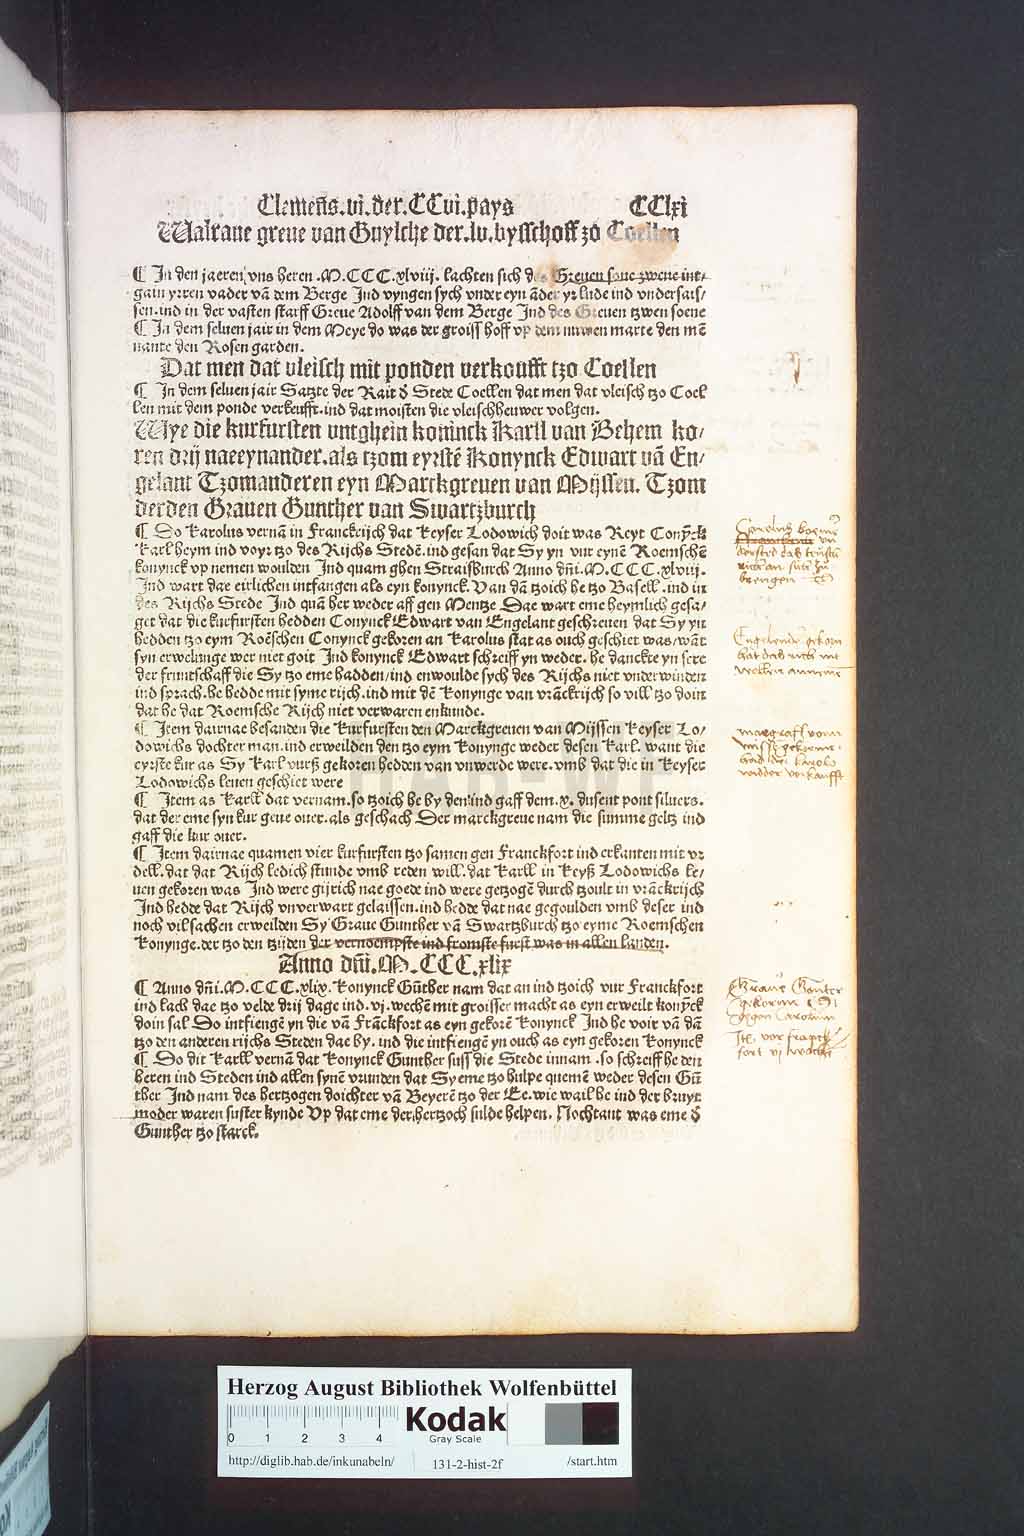 Clemens̄.vi.der.CCvi.pays CClxi
Walraue greue van Guylche der.lv.bysschoff zo Coellen
¶ In den jaeren vns heren .M.CCC.xlviij. lachten sich des Greuen sone zwene int-
gain yrren vader vā dem Berge Ind vyngen sych vnder eyn āder yr lude ind vndersais/
sen.ind in der vasten starff Greue Adolff van dem Berge Ind des Greuen tzwen soene
¶ In dem seluen jair in dem Meye do was der groiss hoff vp dem nuwen marte den mē
nante den Rosen garden.
Dat men dat vleisch mit ponden verkoufft tzo Coellen
¶ In dem seluen jair Satzte der Rait d̄ Stede Coellen dat men dat vleisch tzo Coel
len mit dem ponde verkeufft.ind dat moisten die vleischheuwer volgen.
Wye die kurfursten untghein koninck Karll van Behem ko/
ren drij naeeynander.als tzom eyrstē Konynck Edwart vā En/
gelant Tzomanderen eyn Marckgreuen van Mijssen. Tzom
derden Grauen Gunther van Swartzburch
¶ Do Karolus vernā in Franckrijch dat Keyser Lodowich doit was Reyt Conȳck
Karl heym ind voyr tzo des Rijchs Stedē.ind gesan dat Sy yn vur eynē Roemschē
konynck vp nemen woulden Ind quam ghen Straisburch Anno dn̄i.M.CCC.xlviij.
Ind wart dae eirlichen intfangen als eyn konynck. Van dā tzoich he tzo Basell .ind in
des Rijchs Stede Ind quā her weder aff gen Mentze Dae wart eme heymlich gesa/
get dat die kurfursten hedden Conynck Edwart van Engelant geschreuen dat Sy yn
hedden tzo eym Roēschen Conynck gekoren an Karolus stat as ouch geschiet was/wāt
syn erwelunge wer niet goit Ind konynck Edwart schreiff yn weder. he danckte yn sere
der fruntschaff die Sy tzo eme hadden/ind enwoulde sych des Rijchs niet vnderwinden
ind sprach.he hedde mit syme rijch.ind mit dē Konynge van vrāckrijch so vill tzo doin
dat he dat Roemsche Rijch niet verwaren enkunde.
¶ Item dairnae besanden die kurfursten den Marckgreuen van Mijssen Keyser Lo/
dowichs dochter man.ind erweilden den tzo eym Konynge weder desen Karl. want die
eyrste kur as Sy Karl vurß gekoren hedden van vnwerde were.vmb dat die in Keyser
Lodowichs leuen geschiet were
¶ Item as Karll dat vernam.so tzoich he by den ind gaff dem.x. dusent pont siluers.
dat der eme syn kur geue ouer.als geschach Der marckgreue nam die summe geltz ind
gaff die kur ouer.
¶ Item dairnae quamen vier kurfursten tzo samen gen Franckfort ind erkanten mit vr
dell.dat dat Rijch ledich stunde vmb reden will.dat Karll in Keyß Lodowichs le/
uen gekoren was Ind were gijrich nae goede ind were getzogē durch tzoult in vrāckrijch
Ind hedde dat Rijch vnverwart gelaissen.ind hedde dat nae gegoulden vmb deser ind
noch vil sachen erweilden Sy Graue Gunther vā Swartzburch tzo eyme Roemschen
Konynge.der tzo den tzijden der vernoempste ind fromste furst was in allen landen.
Anno dn̄i.M.CCC.xlix
¶ Anno dn̄i.M.CCC.xlix.Konynck Gūther nam dat an ind tzoich vur Franckfort
ind lach dae tzo velde drij dage ind.vj.wechē mit groisser macht as eyn erweilt konȳck
doin sal Do intfiengē yn die vā Frāckfort as eyn gekorē Konynck Ind he voir vā dā
tzo den anderen rijchs Steden dae by. ind die intfiengē yn ouch as eyn gekoren Konynck
¶ Do dit Karll vernā dat Konynck Gunther suss die Stede innam .so schreiff he den
heren ind Steden ind allen synē vrunden dat Sy eme tzo hulpe quemē weder desen Gū
ther Ind nam des hertzogen doichter vā Beyerē tzo der Ee.wie wail he ind der bruyt
moder waren suster kynde Vp dat eme der hertzoch sulde helpen. Nochtant was eme d̄
Gunther tzo starck.
Engelender gekorn
hat das rich nit
wellen annemen
margraff vonn
Graue Gonter
gekorenn
gegen Carolum
fort vj wochē
Herzog August Bibliothek Wolfenbüttel
0 1 2 3 4
Kodak
Gray Scale
http://diglib.hab.de/inkunabeln/ 131-2-hist-2f /start.htm